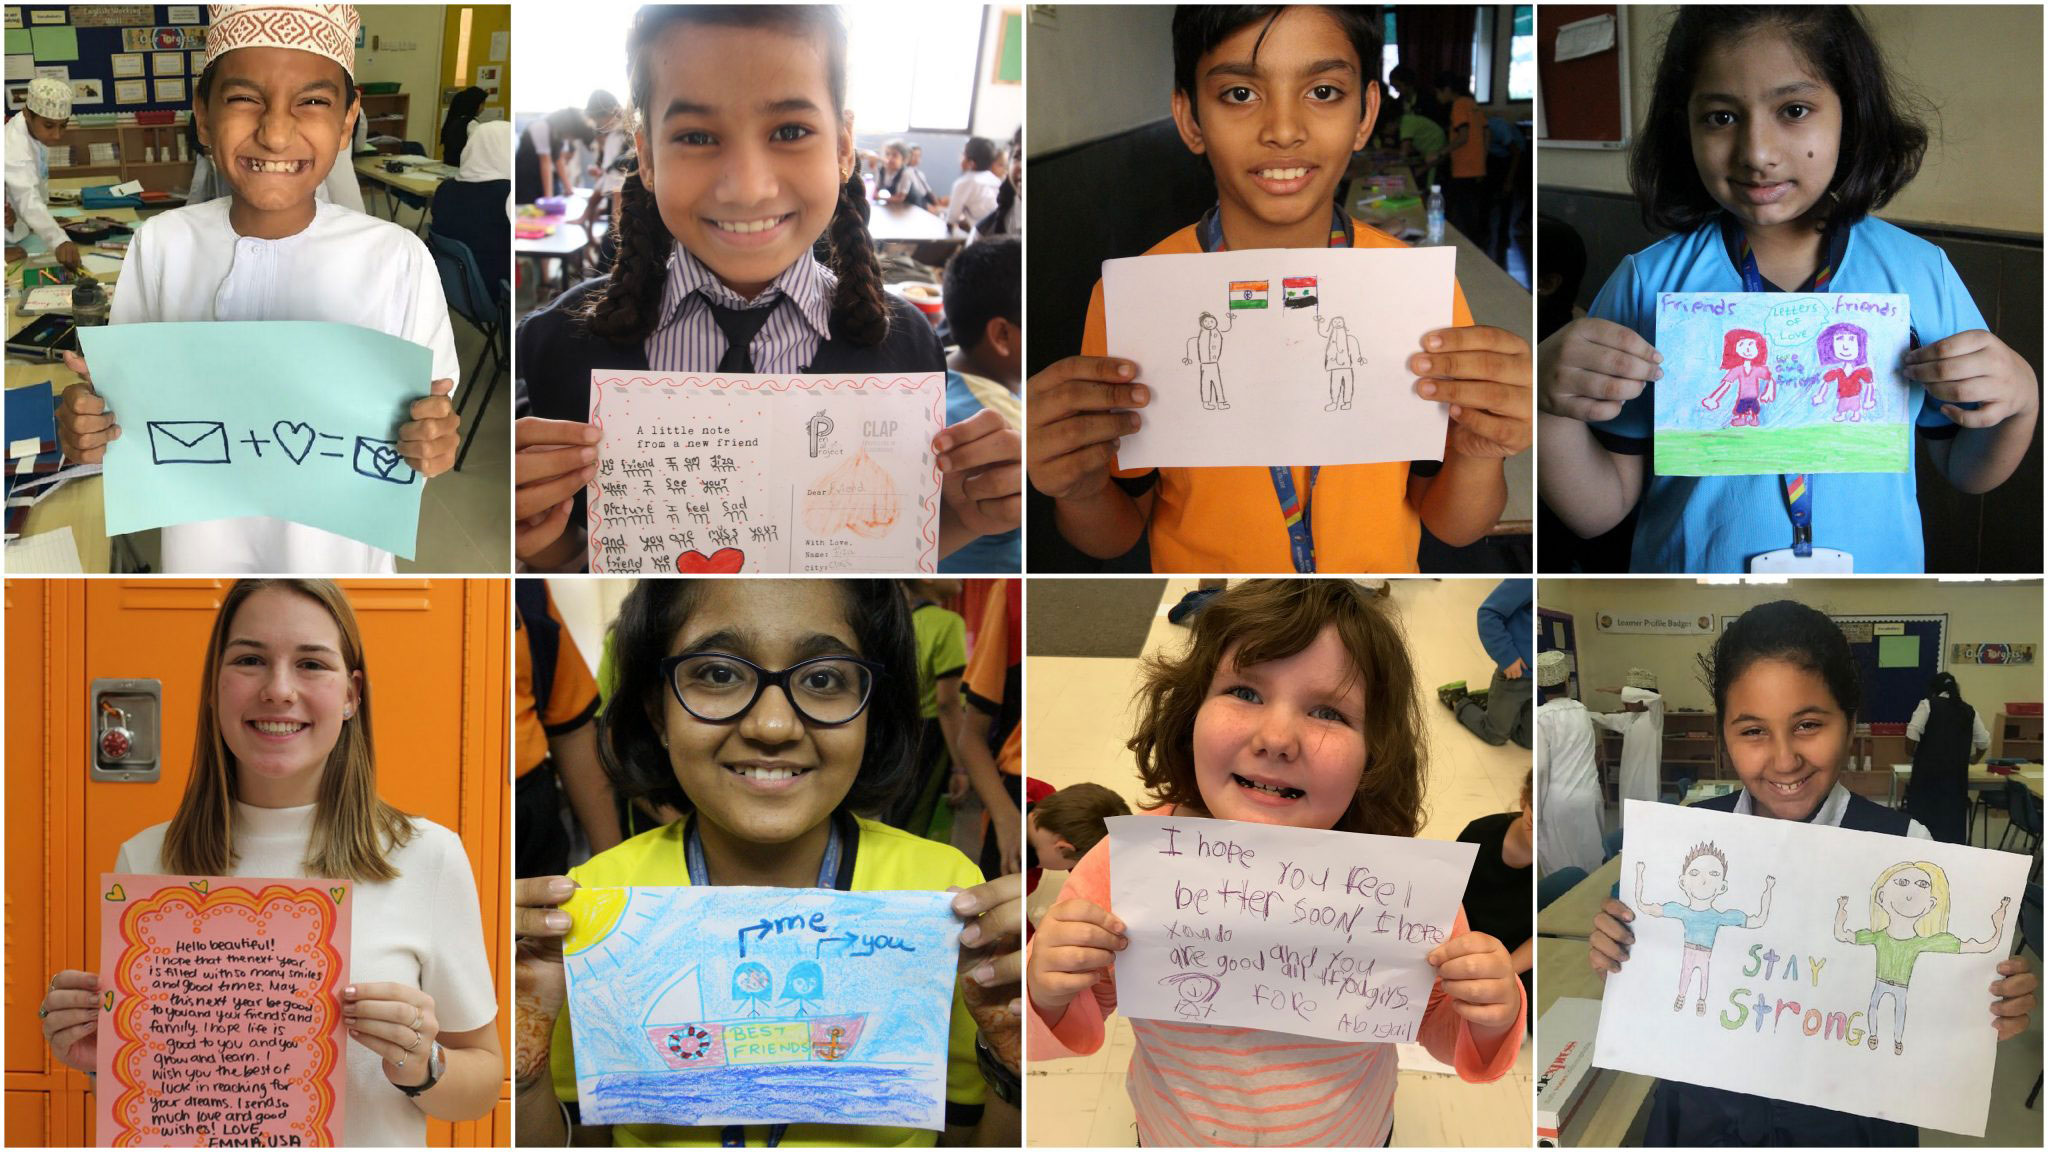 English Working Wall
Our Targets
A little note
from a new friend
Hi friend I am Fiza
When I see your
Picture I feel Sad
and you are miss you?
friend we
Pen
Pal
Project
CLAP
Dear Friend
With Love,
Name: Fiza
City:
Friends
Friends
LETTERS
OF
Love
we
are
friends
Hello beautiful!
I hope that the next year
is filled with so many smiles
and good times. May
this next year be good
to you and your friends and
family. I hope life is
good to you and you
grow and learn. I
wish you the best of
luck in reaching for
your dreams. I send so
much love and good
wishes! LOVE,
EMMA, USA
me
you
BEST
FRIENDS
I hope you feel
better soon, I hope
you do
are good and you
Abigail
Learner Profile Badges
Our Targets
STAY
Strong